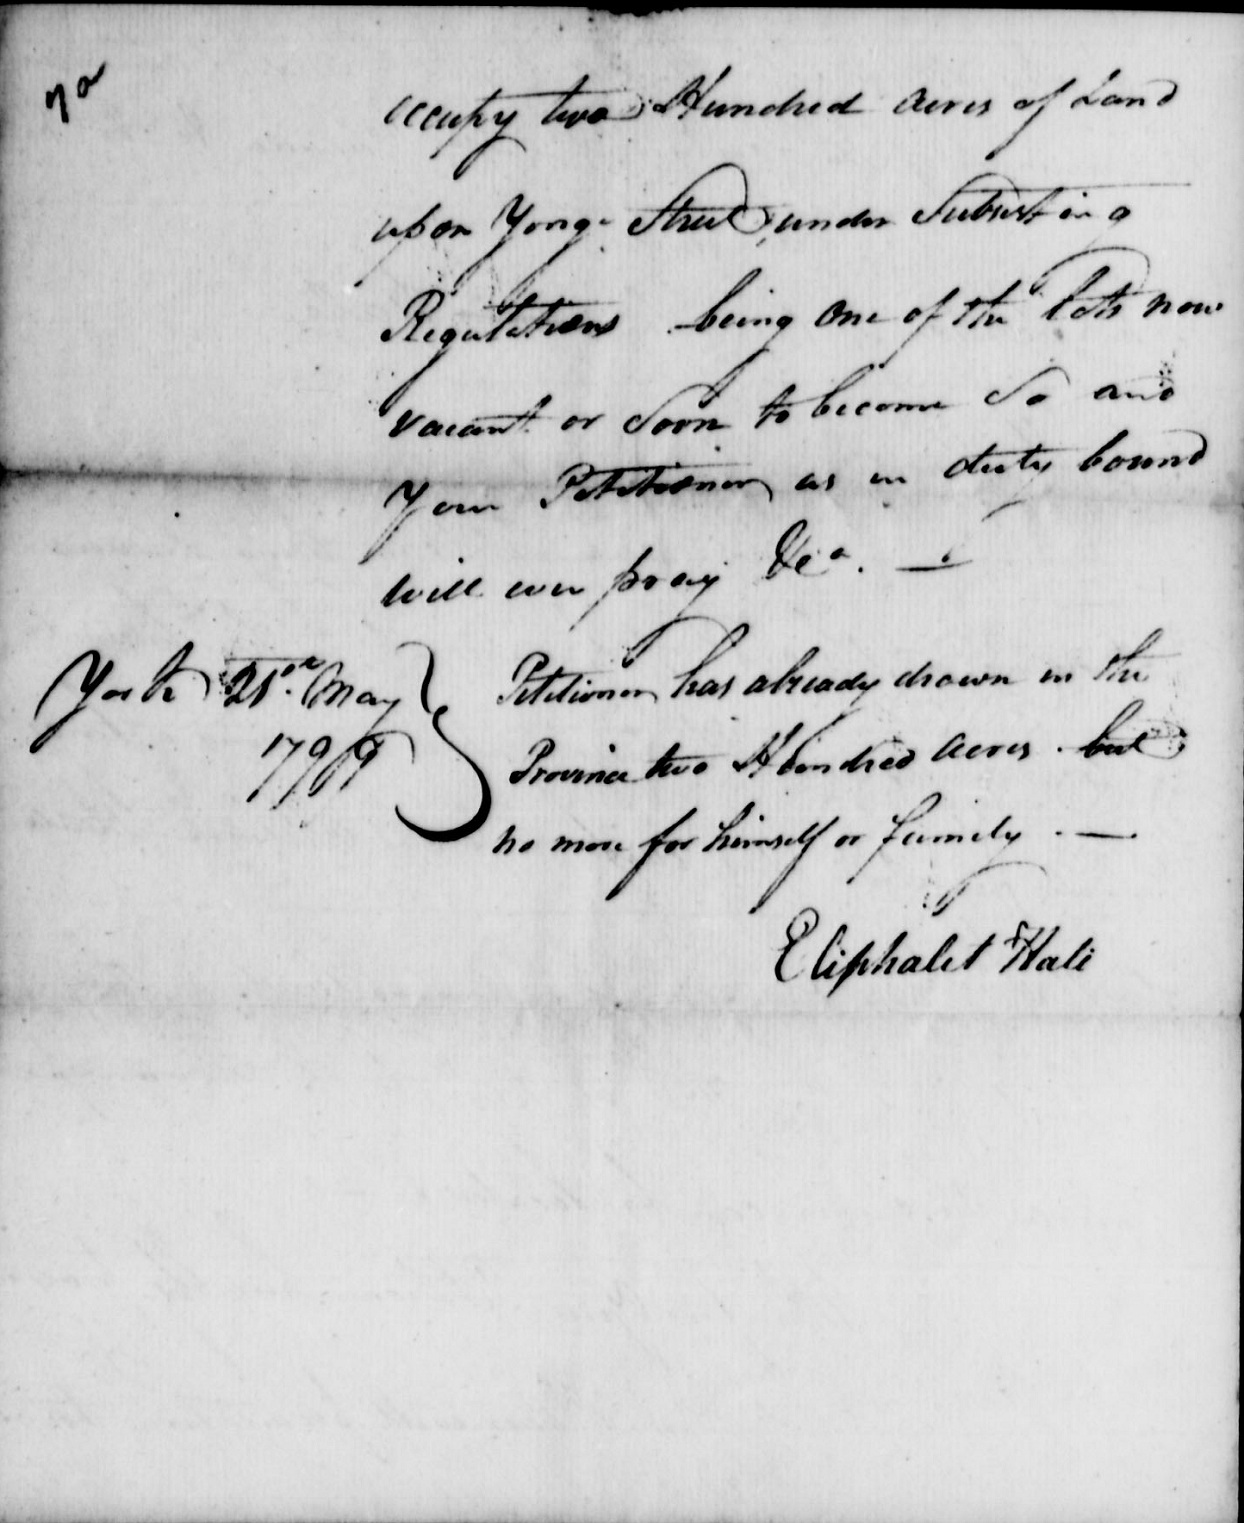 7a
occupy two Hundred acres of Land
upon Yonge Street under Subsisting
Regulations being one of the lots now
vacant or Soon to become So and
Your Petitioner as in duty bound
will ever pray &ca. —
York 21st May
1799
Petitioner has already drawn in the
Province two Hundred acres but
no more for himself or family . —
Eliphalet Hale